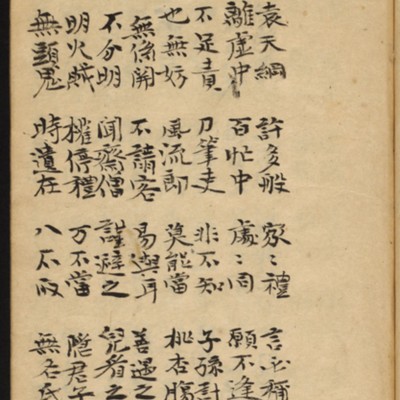 袁天綱 許多般 家〻禮 言必稱
離虛中 百忙中 處〻同 願不逢
不足責 刀筆吏 非不知 子孫計
也無妨 風流郎 莫能當 桃杏腸
無係關 不請客 易與耳 善遇之
不分明 聞齋僧 謹避之 兒看之
明火賊 權停禮 万不當 隱君子
無頭鬼 時遺在 八不取 無名氏